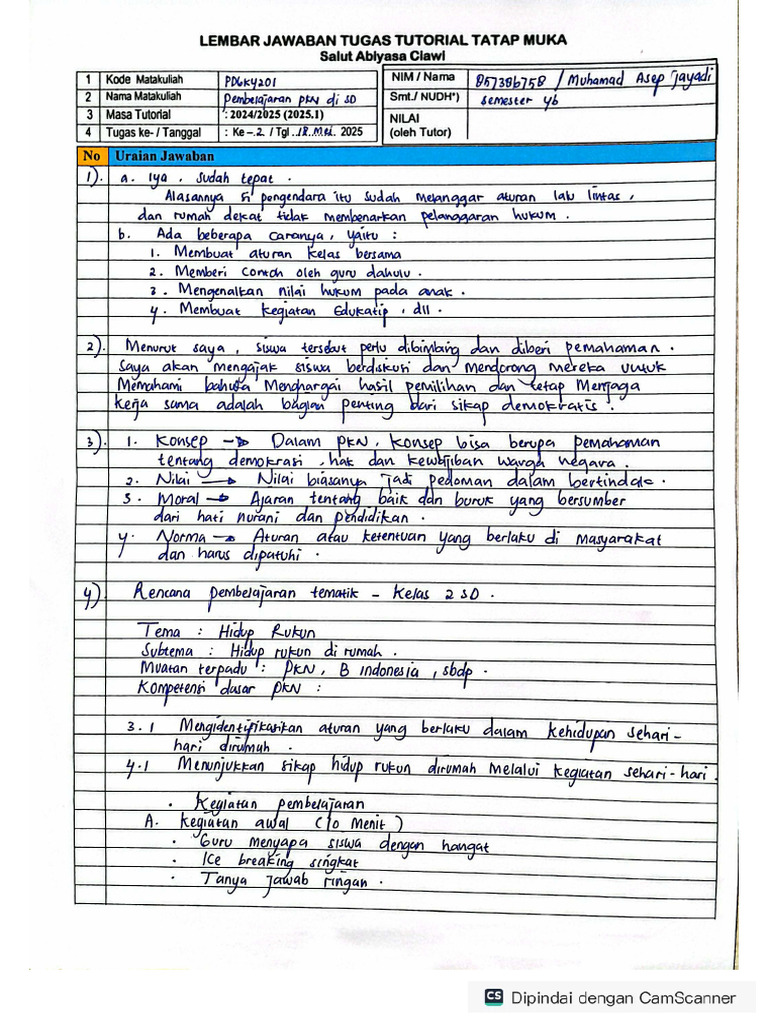 LEMBAR JAWABAN TUGAS TUTORIAL TATAP MUKA
Salut Abiyasa Ciawi
1 Kode Matakuliah PDGK4201
2 Nama Matakuliah Pembelajaran PKN di SD
3 Masa Tutorial : 2024/2025 (2025.1)
4 Tugas ke- / Tanggal : Ke – 2. / Tgl ..18. Mei. 2025
NIM / Nama 857386758 / Muhamad Asep Jayadi
Smt./ NUDH*) Semester 4b
NILAI
(oleh Tutor)
No Uraian Jawaban
1). a. Iya, sudah tepat.
Alasannya si pengendara itu sudah melanggar aturan lalu lintas,
dan rumah dekat tidak membenarkan pelanggaran hukum.
b. Ada beberapa caranya, yaitu :
1. Membuat aturan kelas bersama
2. Memberi contoh oleh guru dahulu.
3. Mengenalkan nilai hukum pada anak.
4. Membuat kegiatan Edukatip, dll.
2). Menurut saya, siswa tersebut perlu dibimbing dan diberi pemahaman.
Saya akan mengajak siswa berdiskusi dan Mendorong mereka untuk
Memahami bahwa Menghargai hasil pemilihan dan tetap Menjaga
kerja sama adalah bagian penting dari sikap demokratis.
3). 1. Konsep → Dalam PKN, konsep bisa berupa pemahaman
tentang demokrasi, hak dan kewajiban warga negara.
2. Nilai → Nilai biasanya jadi pedoman dalam bertindak.
3. Moral → Ajaran tentang baik dan buruk yang bersumber
dari hati nurani dan pendidikan.
4. Norma → Aturan atau ketentuan yang berlaku di Masyarakat
dan harus dipatuhi.
4) Rencana pembelajaran tematik – Kelas 2 SD.
Tema : Hidup Rukun
Subtema : Hidup rukun di rumah.
Muatan terpadu : PKN, B indonesia, sbdp.
Kompetensi dasar PKN :
3.1 Mengidentifikasikan aturan yang berlaku dalam kehidupan sehari-
hari dirumah.
4.1 Menunjukkan sikap hidup rukun dirumah Melalui kegiatan sehari-hari.
• Kegiatan pembelajaran
A. kegiatan awal (10 Menit)
• Guru menyapa siswa dengan hangat
• Ice breaking singkat
• Tanya jawab ringan.
CS Dipindai dengan CamScanner